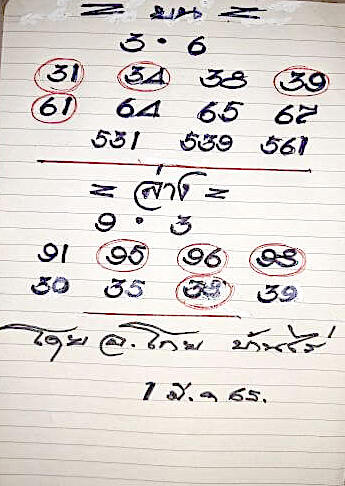 = บน =
3 · 6
31 34 38 39
61 64 65 67
531 539 561
= ล่าง =
9 · 3
91 95 96 98
30 35 38 39
โดย อ. โกย บ้านไร่
1 มี.ค 65.